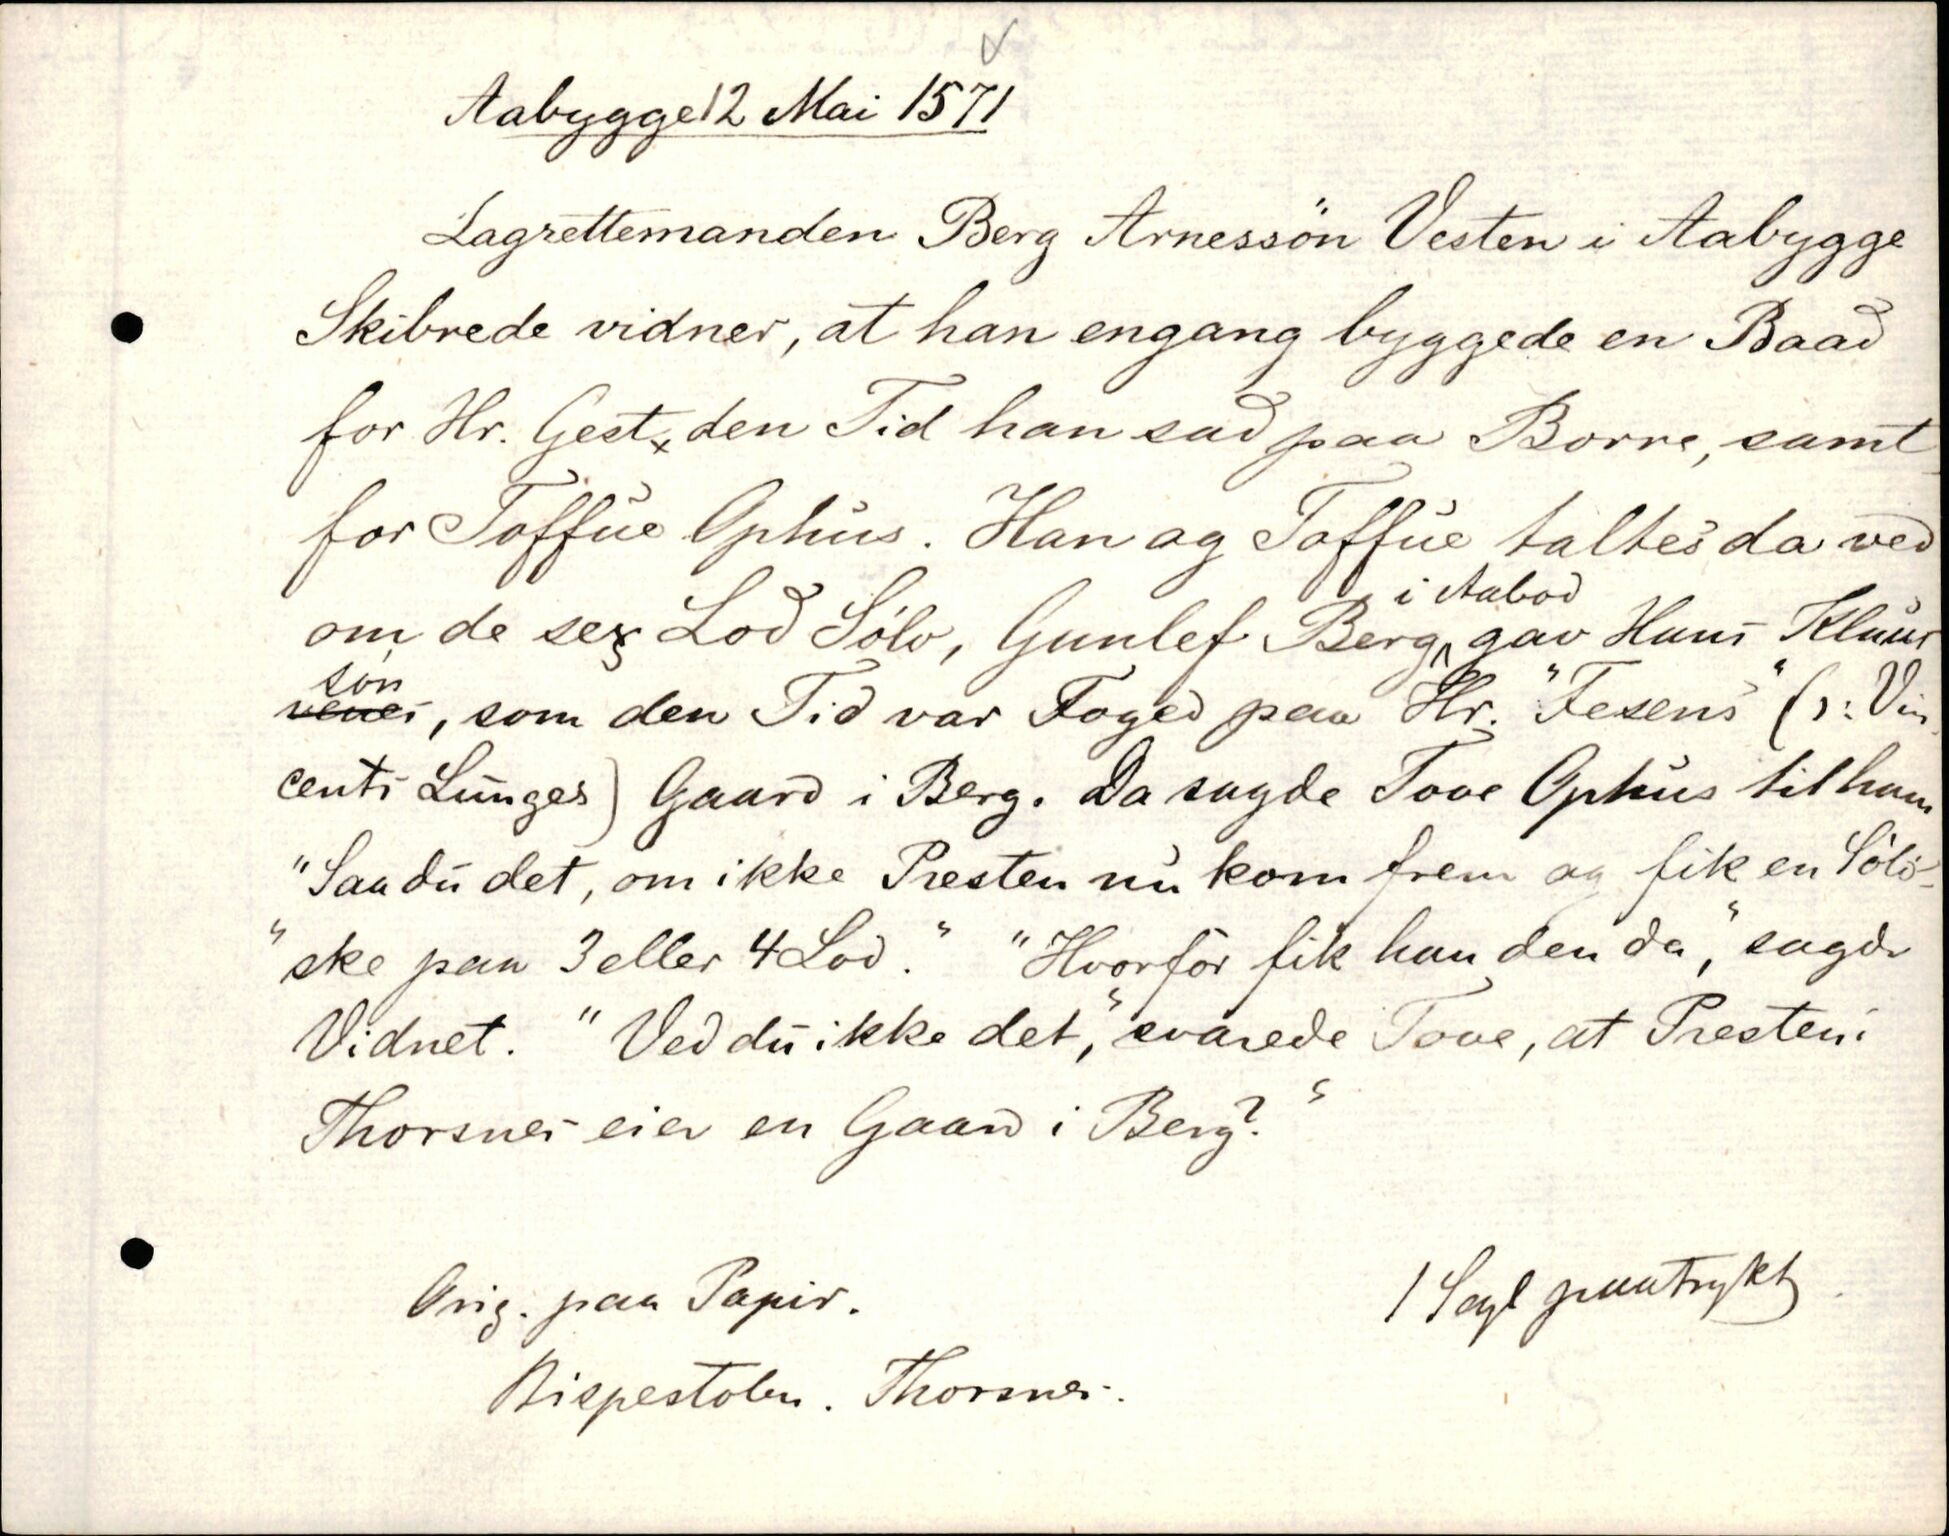 Aabygge 12 Mai 1571
Lagrettemanden Berg Arnessön Vesten i Aabygge
Skibrede vidner, at han engang byggede en Baad
for Hr. Gest, den Tid han sad paa Borre, samt
for Toffue Ophus. Han og Toffue taltes da ved
i Aabod
om de sex Lod Sölv, Gunlef Berg gav Hans Klaus
sön
, som den Tid var Foged paa Hr. "Fesens" (ɔ: Vin
cents Lunges) Gaard i Berg. Da sagde Tove Ophus til ham
"Saa du det, om ikke Presten nu kom frem og fik en Sölv-
"ske paa 3 eller 4 Lod." "Hvorfor fik han den da," sagde
Vidnet. "Ved du ikke det," svarede Tove, at Presten i
Thorsnes eier en Gaard i Berg?"
Orig. paa Papir.
1 Segl paatrykt
Bispestolen. Thorsnes.